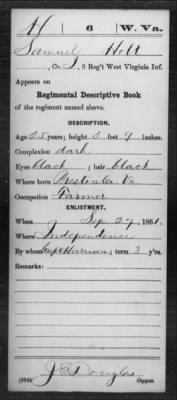 H | 6 | W. Va.
Samuel Holt
Co. I, 6 Reg't West Virginia Inf.
Appears on
Regimental Descriptive Book
of the regiment named above.
DESCRIPTION.
Age 25 years; height 5 feet 9 inches.
Complexion dark
Eyes black; hair black
Where born Preston Co Va
Occupation Farmer
ENLISTMENT.
When Sep 27, 1861.
Where Independence
By whom Capt Harrison; term 3 y'rs.
Remarks:
J. E. Douglas
Copyist.